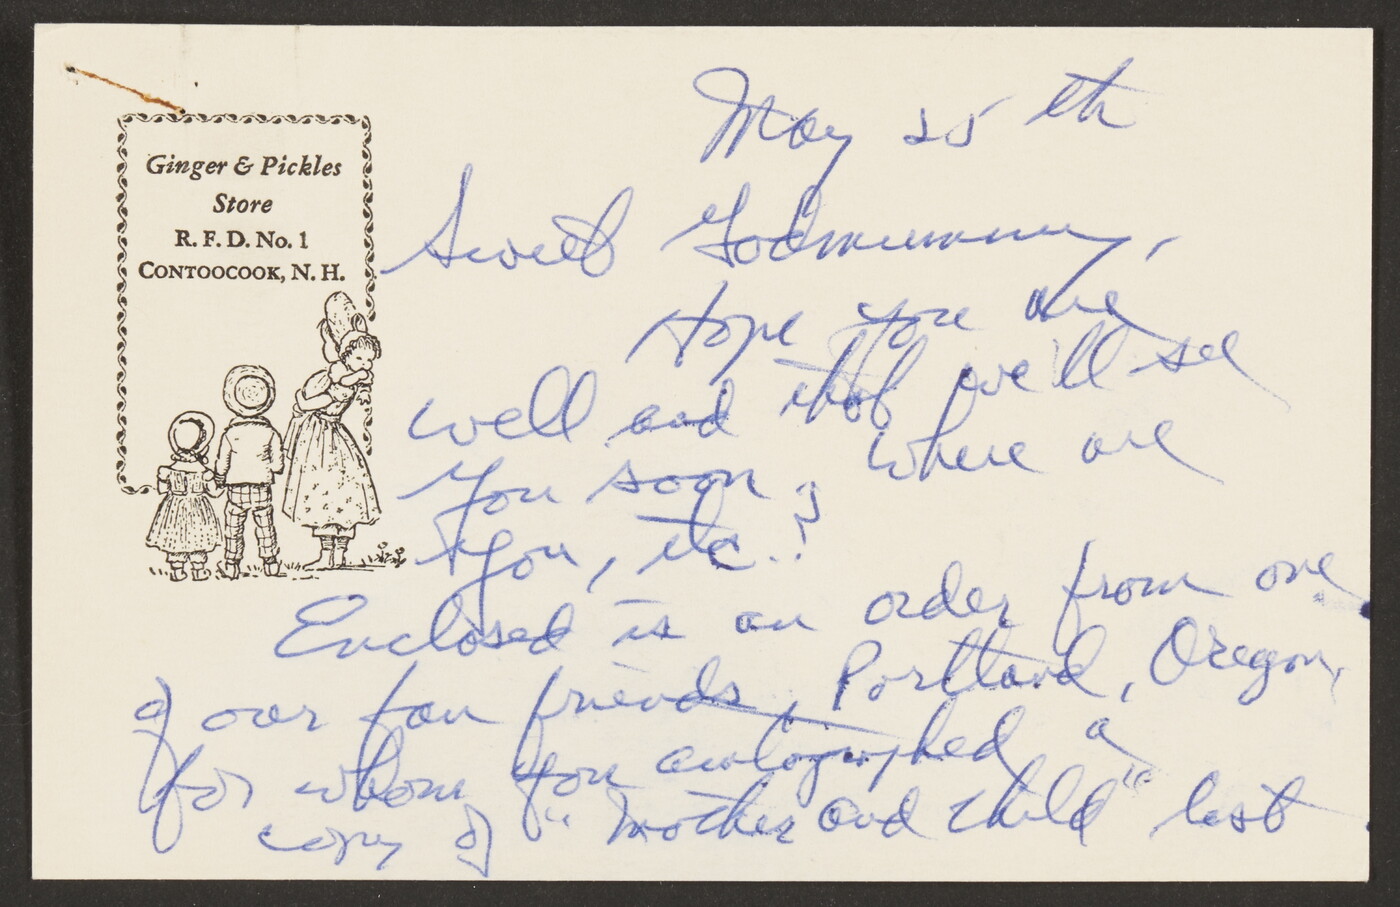 Ginger & Pickles
Store
R. F. D. No. 1
CONTOOCOOK, N. H.
May 25th
Sweet Godmummy,
Hope you are
well and that we'll see
you soon, where are
you, etc.!
Enclosed is an order from one
of our fan friends, Portland, Oregon,
for whom you autographed a
copy of "Mother and Child" last